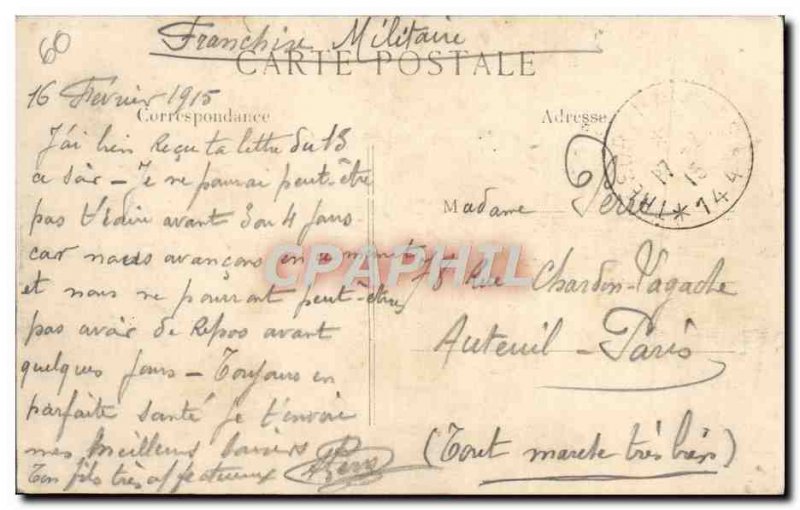 60
Franchise Militaire
CARTE POSTALE
16 Fevrier 1915
Correspondance
J'ai bien Reçu ta lettre du 13
ce soir – Je ne pourrai peut-être
pas t'écrire avant 3 ou 4 jours
car nous avançons en ce moment
et nous ne pourront peut-être
pas avoir de Repos avant
quelques jours – Toujours en
parfaite santé je t'envoie
mes meilleurs baisers
Ton fils très affectueux
Adresse
Madame
78 Rue Chardon-Lagache
Auteuil – Paris
(Tout marche très bien)
17
15
* 144
CPAPHIL